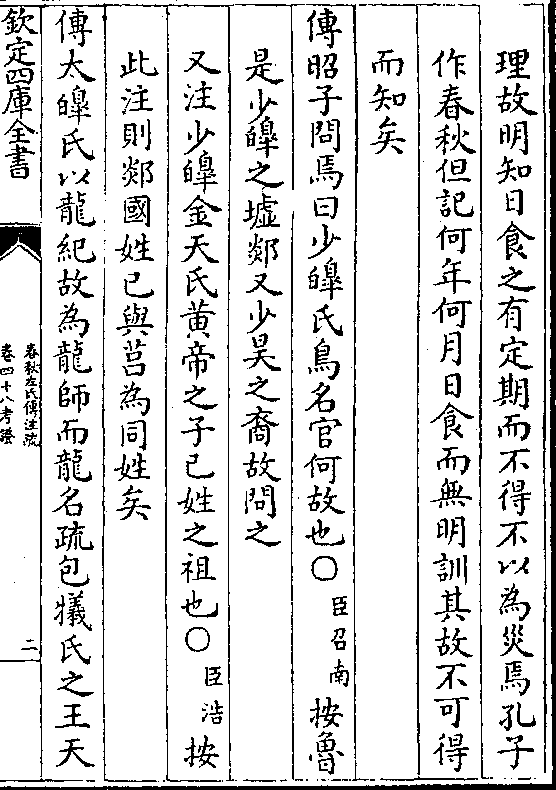 理故明知日食之有定期而不得不以為災焉孔子
作春秋但記何年何月日食而無明訓其故不可得
而知矣
傳昭子問焉曰少皥氏鳥名官何故也○臣召南按魯
是少皥之墟郯又少昊之裔故問之
又注少皥金天氏黄帝之子已姓之祖也○臣浩按
此注則郯國姓已與莒為同姓矣
傳太皥氏以龍紀故為龍師而龍名疏包犧氏之王天
欽定四庫全書
春秋左氏傳注疏
卷四十八考證
二